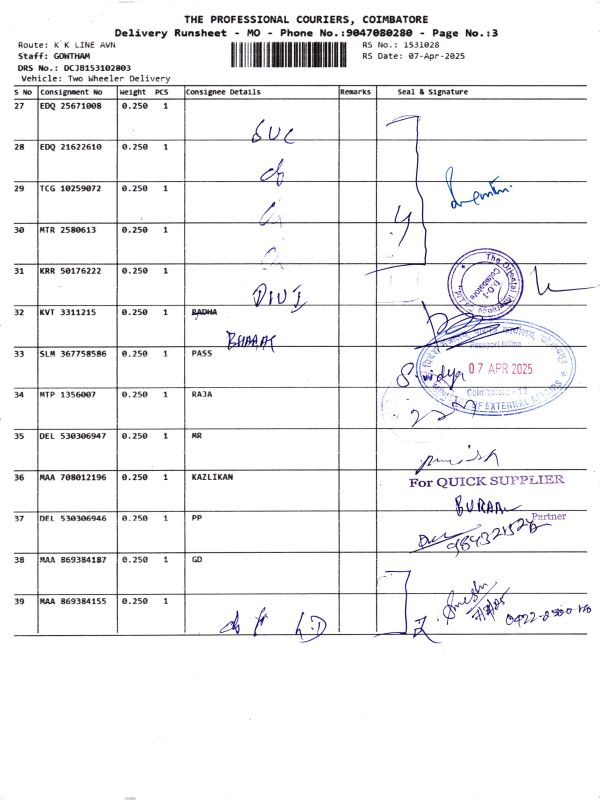 THE PROFESSIONAL COURIERS, COIMBATORE
Delivery Runsheet - MO - Phone No.:9047080280 - Page No.:3
Route: K K LINE AVN
RS No.: 1531028
Staff: GOWTHAM
RS Date: 07-Apr-2025
DRS No.: DCJB153102803
Vehicle: Two Wheeler Delivery
S No Consignment No Weight PCS Consignee Details Remarks Seal & Signature
27 EDQ 25671008 0.250 1
SUC
28 EDQ 21622610 0.250 1
29 TCG 10259072 0.250 1
30 MTR 2580613 0.250 1
31 KRR 50176222 0.250 1
DIVI
32 KVT 3311215 0.250 1 RADHA
BHARAT
33 SLM 367758586 0.250 1 PASS
Passport Office
07 APR 2025
Coimbatore
OF EXTERNAL AFFAIRS
34 MTP 1356007 0.250 1 RAJA
35 DEL 530306947 0.250 1 MR
36 MAA 708012196 0.250 1 KAZLIKAN
For QUICK SUPPLIER
Partner
37 DEL 530306946 0.250 1 PP
38 MAA 869384187 0.250 1 GD
39 MAA 869384155 0.250 1